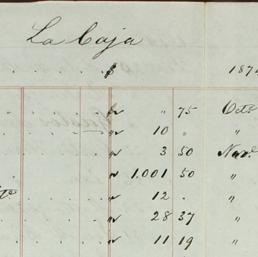 La Caja
$ 187
" 75 Octe
10 . "
3 50 Nove
1.001 50 "
12 . "
28 37 "
11 19 "